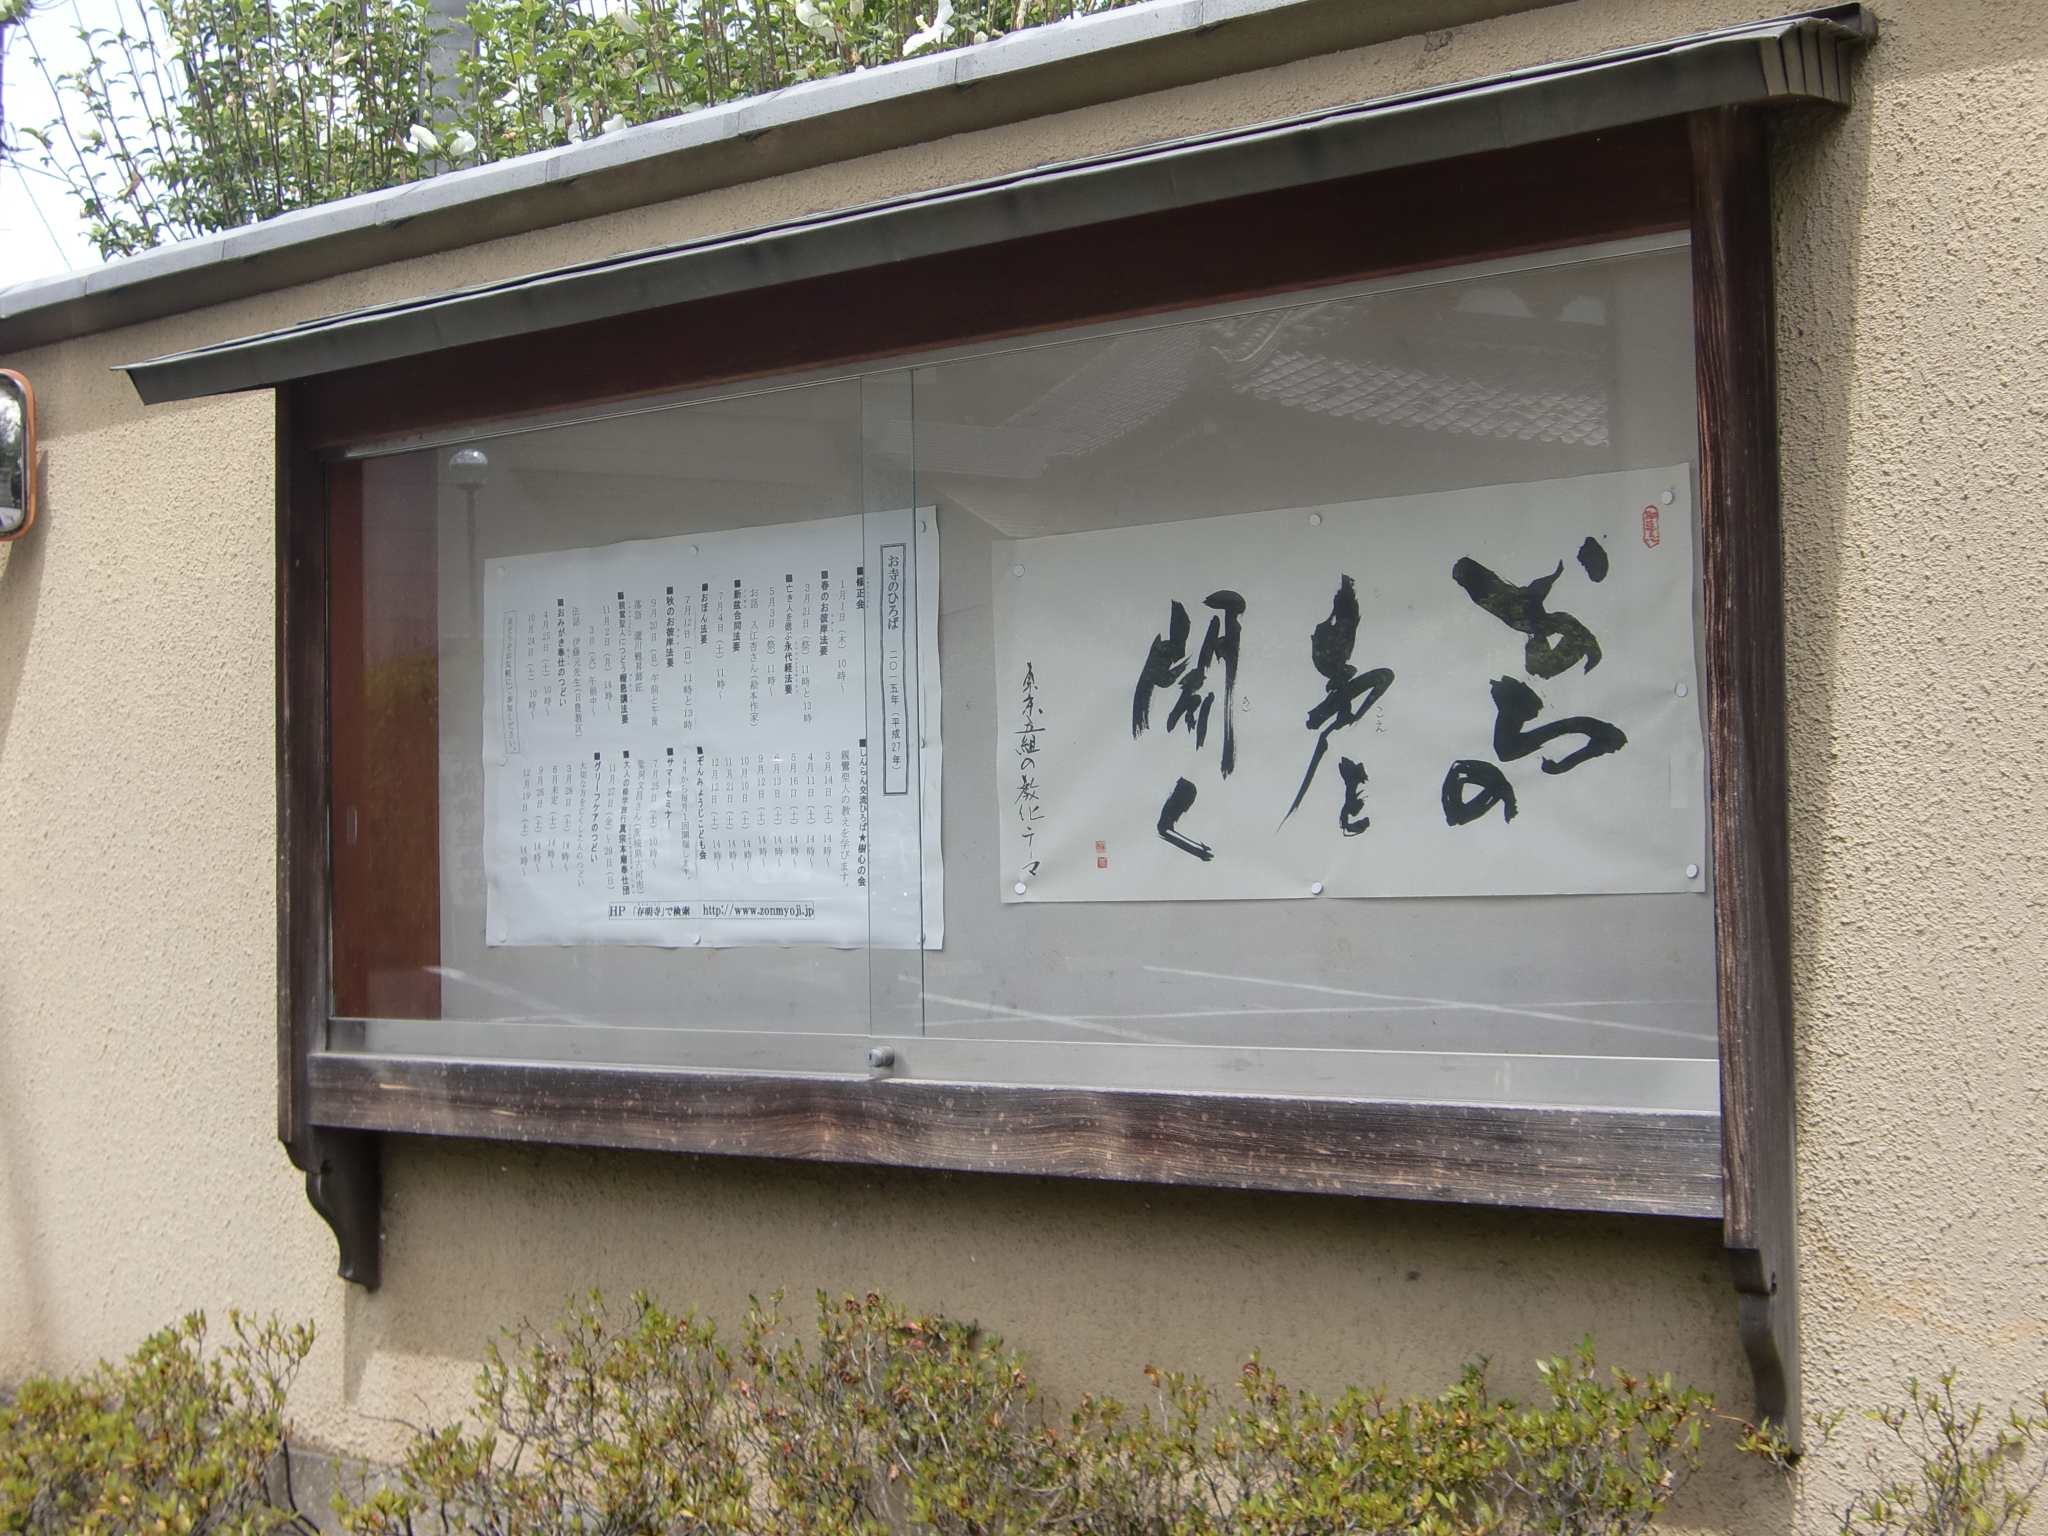 いのちの
声を
こえ
聞く
き
東京五組の教化テーマ
お寺のひろば 二〇一五年(平成27年)
■修正会
1月1日(木)10時〜
■春のお彼岸法要
3月21日(祭)11時と13時
■亡き人を偲ぶ永代経法要
5月3日(祭)11時〜
お話 入江杏さん(絵本作家)
■新盆合同法要
7月4日(土)11時〜
■おぼん法要
7月12日(日)11時と13時
■秋のお彼岸法要
9月20日(日)午前と午後
落語 瀧川鯉昇師匠
■親鸞聖人につどう報恩講法要
11月2日(月)14時〜
3日(火)午前中〜
法話 伊藤元先生(日豊教区)
■おみがき奉仕のつどい
4月25日(土)10時〜
10月24日(土)10時〜
※どうぞお気軽にご参加ください。
■しんらん交流ひろば★樹心の会
親鸞聖人の教えを学びます。
3月14日(土)14時〜
4月11日(土)14時〜
5月16日(土)14時〜
6月13日(土)14時〜
9月12日(土)14時〜
10月10日(土)14時〜
11月21日(土)14時〜
12月12日(土)14時〜
■ぞんみょうじこども会
4月から毎月1回開催します。
■サマーセミナー
7月25日(土)10時〜
梁河文昌さん(茨城県古河市)
■大人の修学旅行真宗本廟奉仕団
11月27日(金)〜29日(日)
■グリーフケアのつどい
大切な方を亡くした人のつどい
3月28日(土)14時〜
6月未定(土)14時〜
9月26日(土)14時〜
12月19日(土)14時〜
HP「存明寺」で検索 http://www.zonmyoji.jp